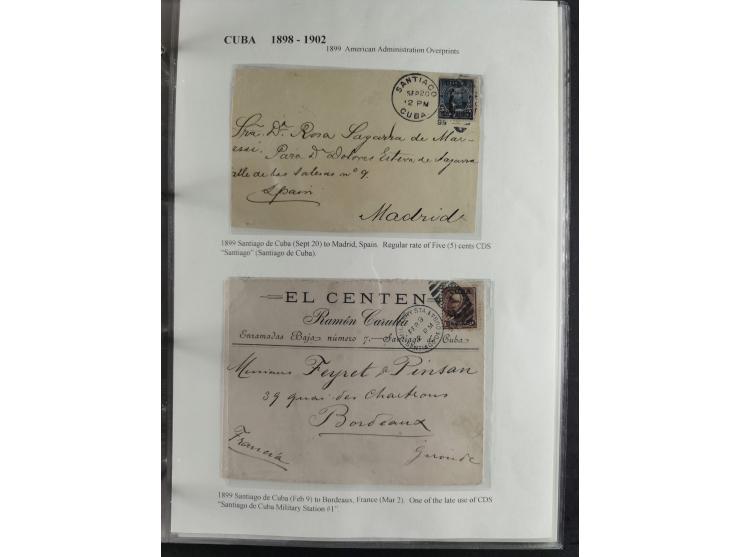 CUBA 1898 - 1902
1899 American Administration Overprints
SANTIAGO
SEP 20
12 PM
CUBA
99
Sra. Da. Rosa Sagarra de Mar-
Para Da. Dolores Esteva de Sagarra
Calle de las Salesas no 9.
Spain
Madrid
1899 Santiago de Cuba (Sept 20) to Madrid, Spain. Regular rate of Five (5) cents CDS
"Santiago" (Santiago de Cuba).
EL CENTEN
Ramón Carulla
Enramadas Baja número 7.- Santiago de Cuba
MILITARY STA.
FEB 9
PM
SANTIAGO
Messieurs Feyret & Pinsan
39 quai des Chartrons
Bordeaux
Francia
Gironde
1899 Santiago de Cuba (Feb 9) to Bordeaux, France (Mar 2). One of the late use of CDS
"Santiago de Cuba Military Station #1".